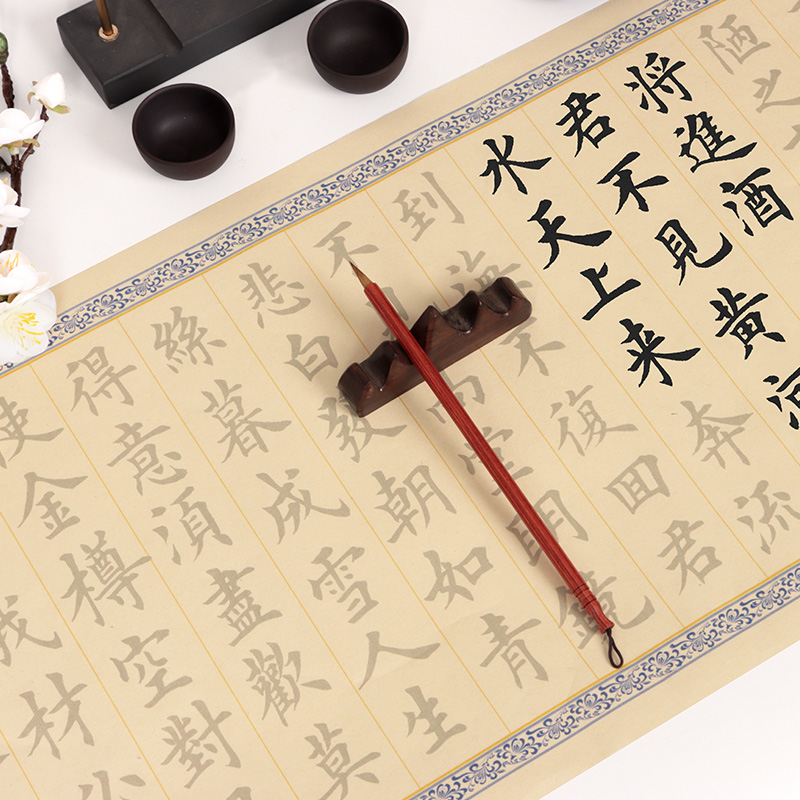 陋之
將進酒
君不見黄河
水天上来奔流
到海不復回君
不見高堂明鏡
悲白發朝如青
絲暮成雪人生
得意須盡歡莫
使金樽空對
我材必